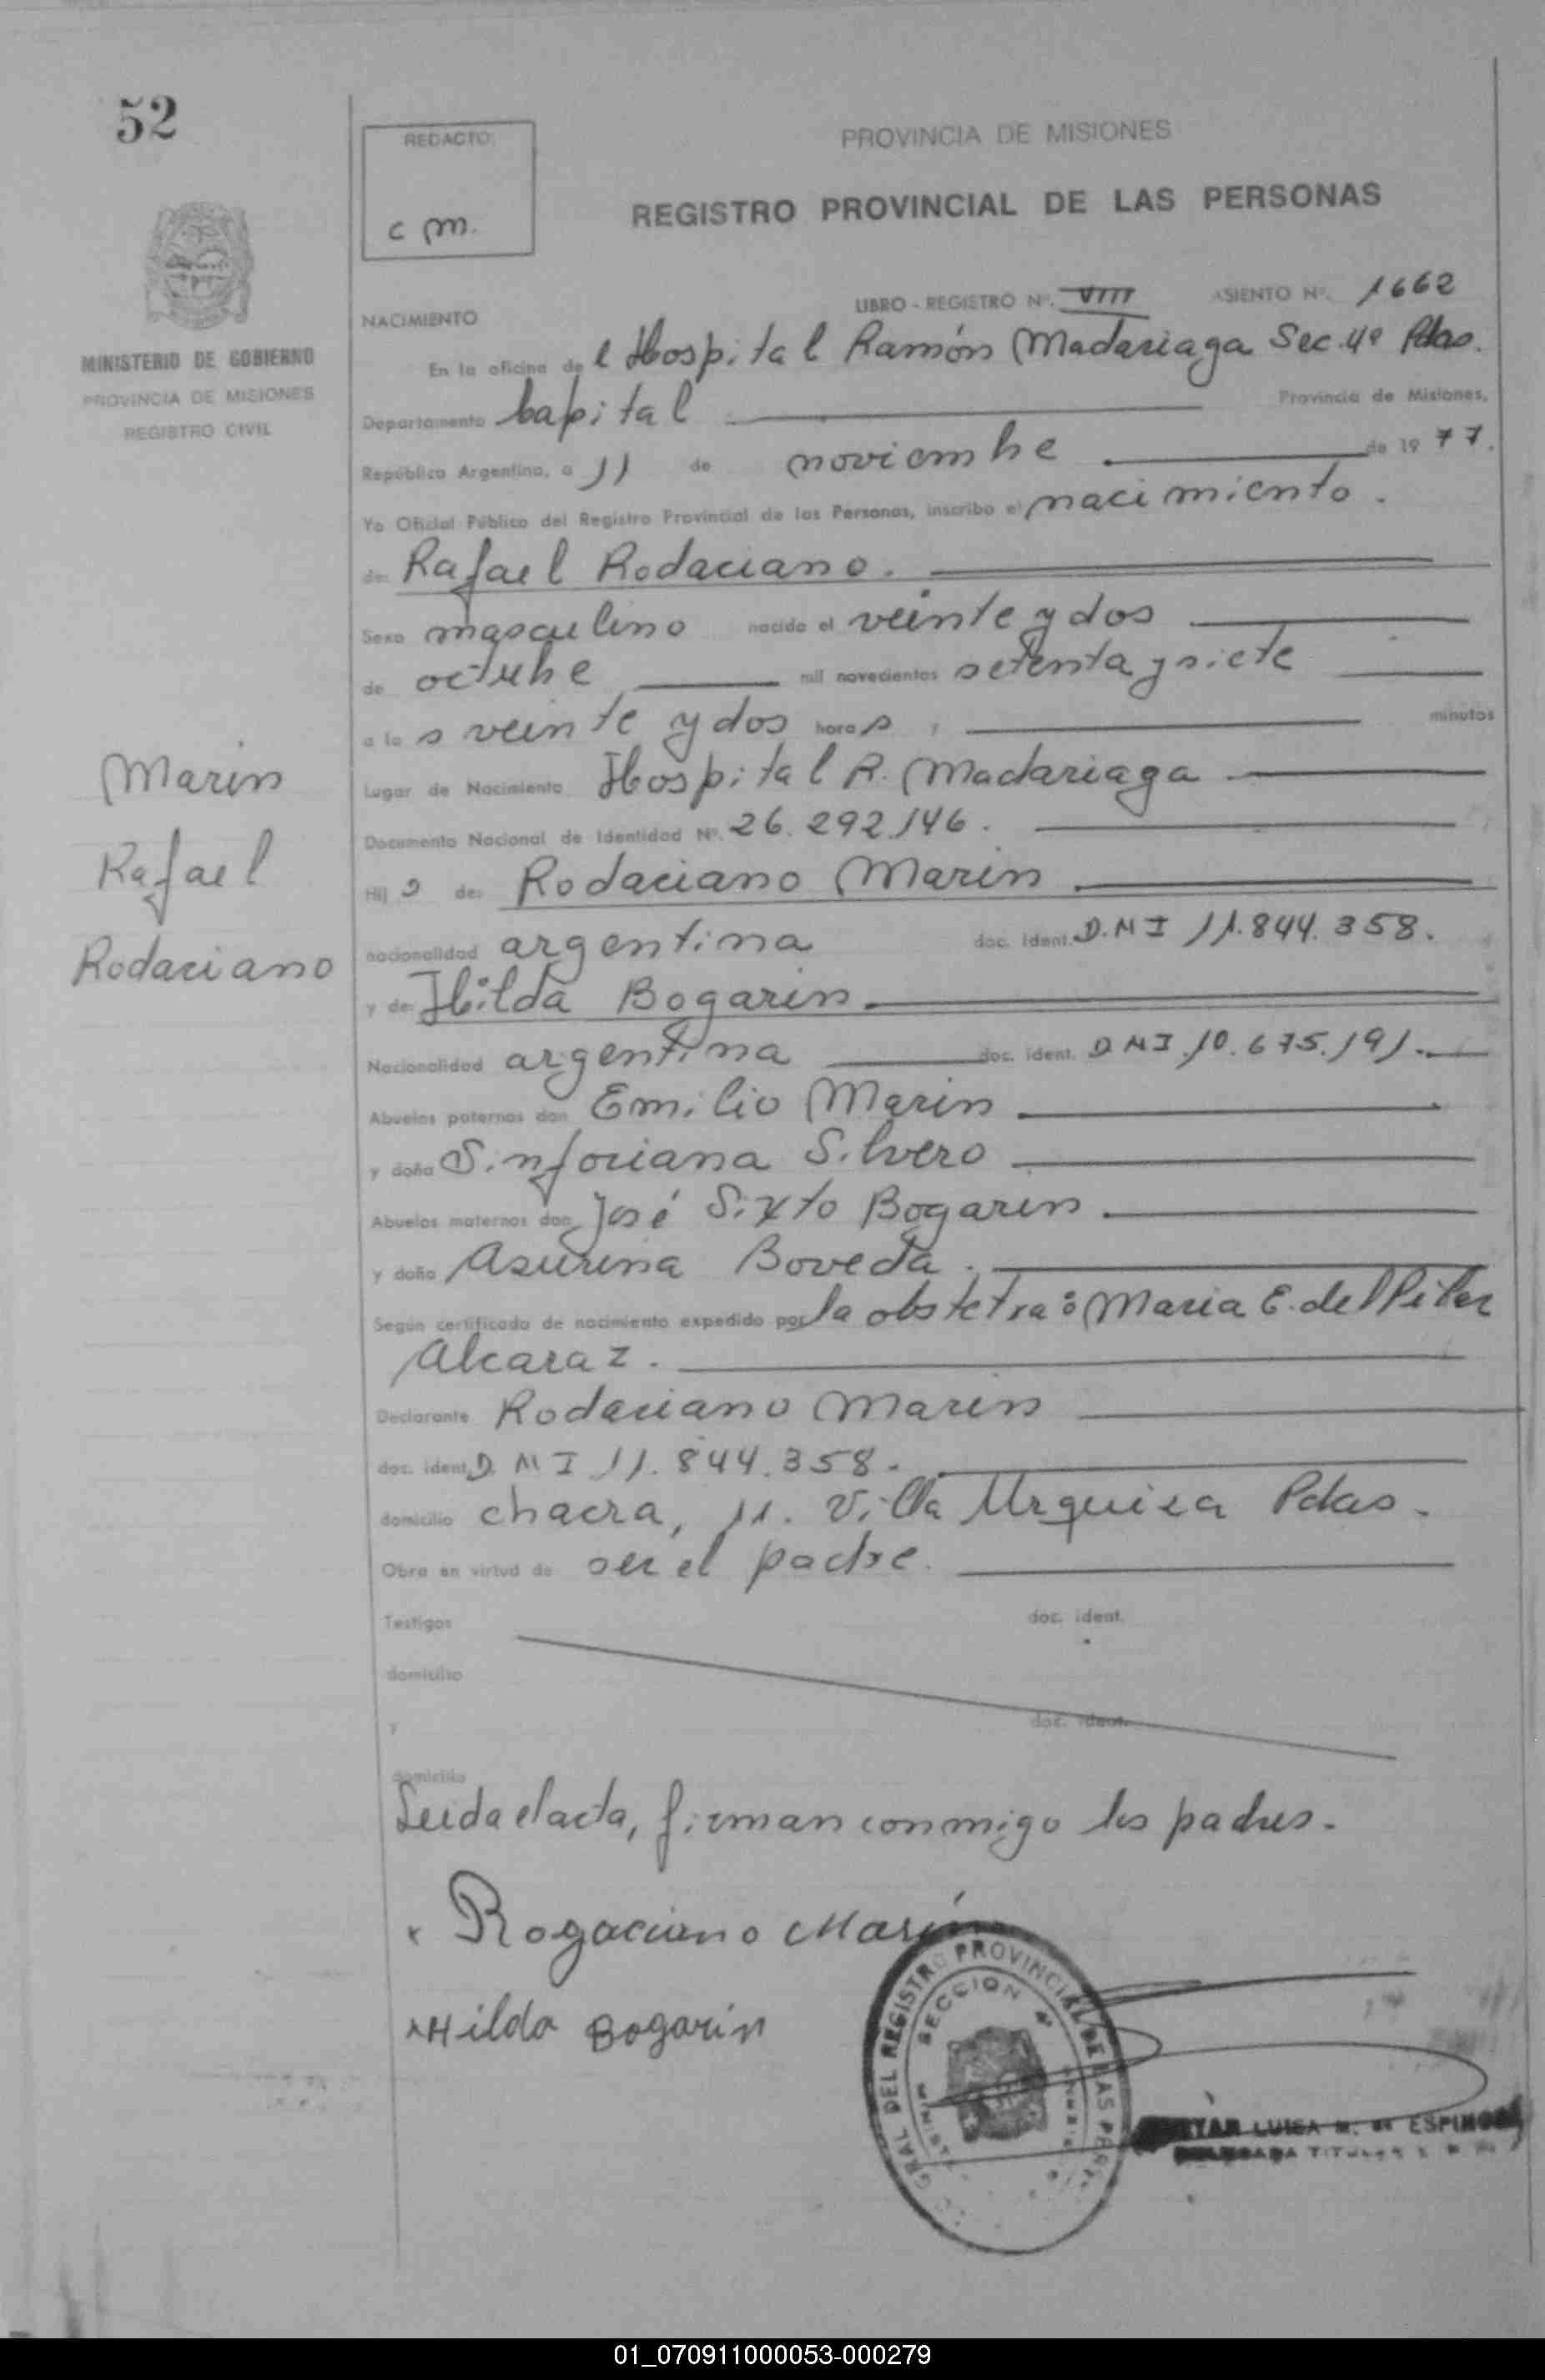 52
REDACTO:
c m.
PROVINCIA DE MISIONES
REGISTRO PROVINCIAL DE LAS PERSONAS
MINISTERIO DE GOBIERNO
PROVINCIA DE MISIONES
REGISTRO CIVIL
NACIMIENTO
LIBRO - REGISTRO Nº. VIII ASIENTO Nº. 1662
En la oficina del Hospital Ramón Madariaga Sec. 4º Pdas.
Departamento Capital Provincia de Misiones,
República Argentina, a 11 de noviembre de 1977.
Yo Oficial Público del Registro Provincial de las Personas, inscribo el nacimiento.
de: Rafael Rodaciano.
Sexo masculino nacido el veinte y dos
de octubre mil novecientos setenta y siete
a las veinte y dos horas y minutos
Lugar de Nacimiento Hospital R. Madariaga
Documento Nacional de Identidad Nº. 26.292.146.
Hijo de: Rodaciano Marin
nacionalidad argentina doc. ident. D.N I 11.844.358.
y de: Hilda Bogarin
Nacionalidad argentina doc. ident. D N I.10.675.191.
Abuelos paternos don Emilio Marin
y doña Sinforiana Silvero
Abuelos maternos don José Sixto Bogarin
y doña Asurina Boveda.
Según certificado de nacimiento expedido por la obstetra: Maria E. del Pilar
Alcaraz.
Declarante Rodaciano Marin
doc. ident. D. N I 11.844.358.
domicilio chacra, 11. Villa Urquiza Pdas.
Obra en virtud de ser el padre.
Testigos doc. ident.
domicilio
y doc. ident.
domicilio
Leida el acta, firman conmigo los padres.
x Rogaciano Marín
x Hilda Bogarin
Marin
Rafael
Rodaciano
GRAL DEL REGISTRO PROVINCIAL DE LAS PER
SECCION 4ª
LUISA M. de ESPINOSA
01_070911000053-000279